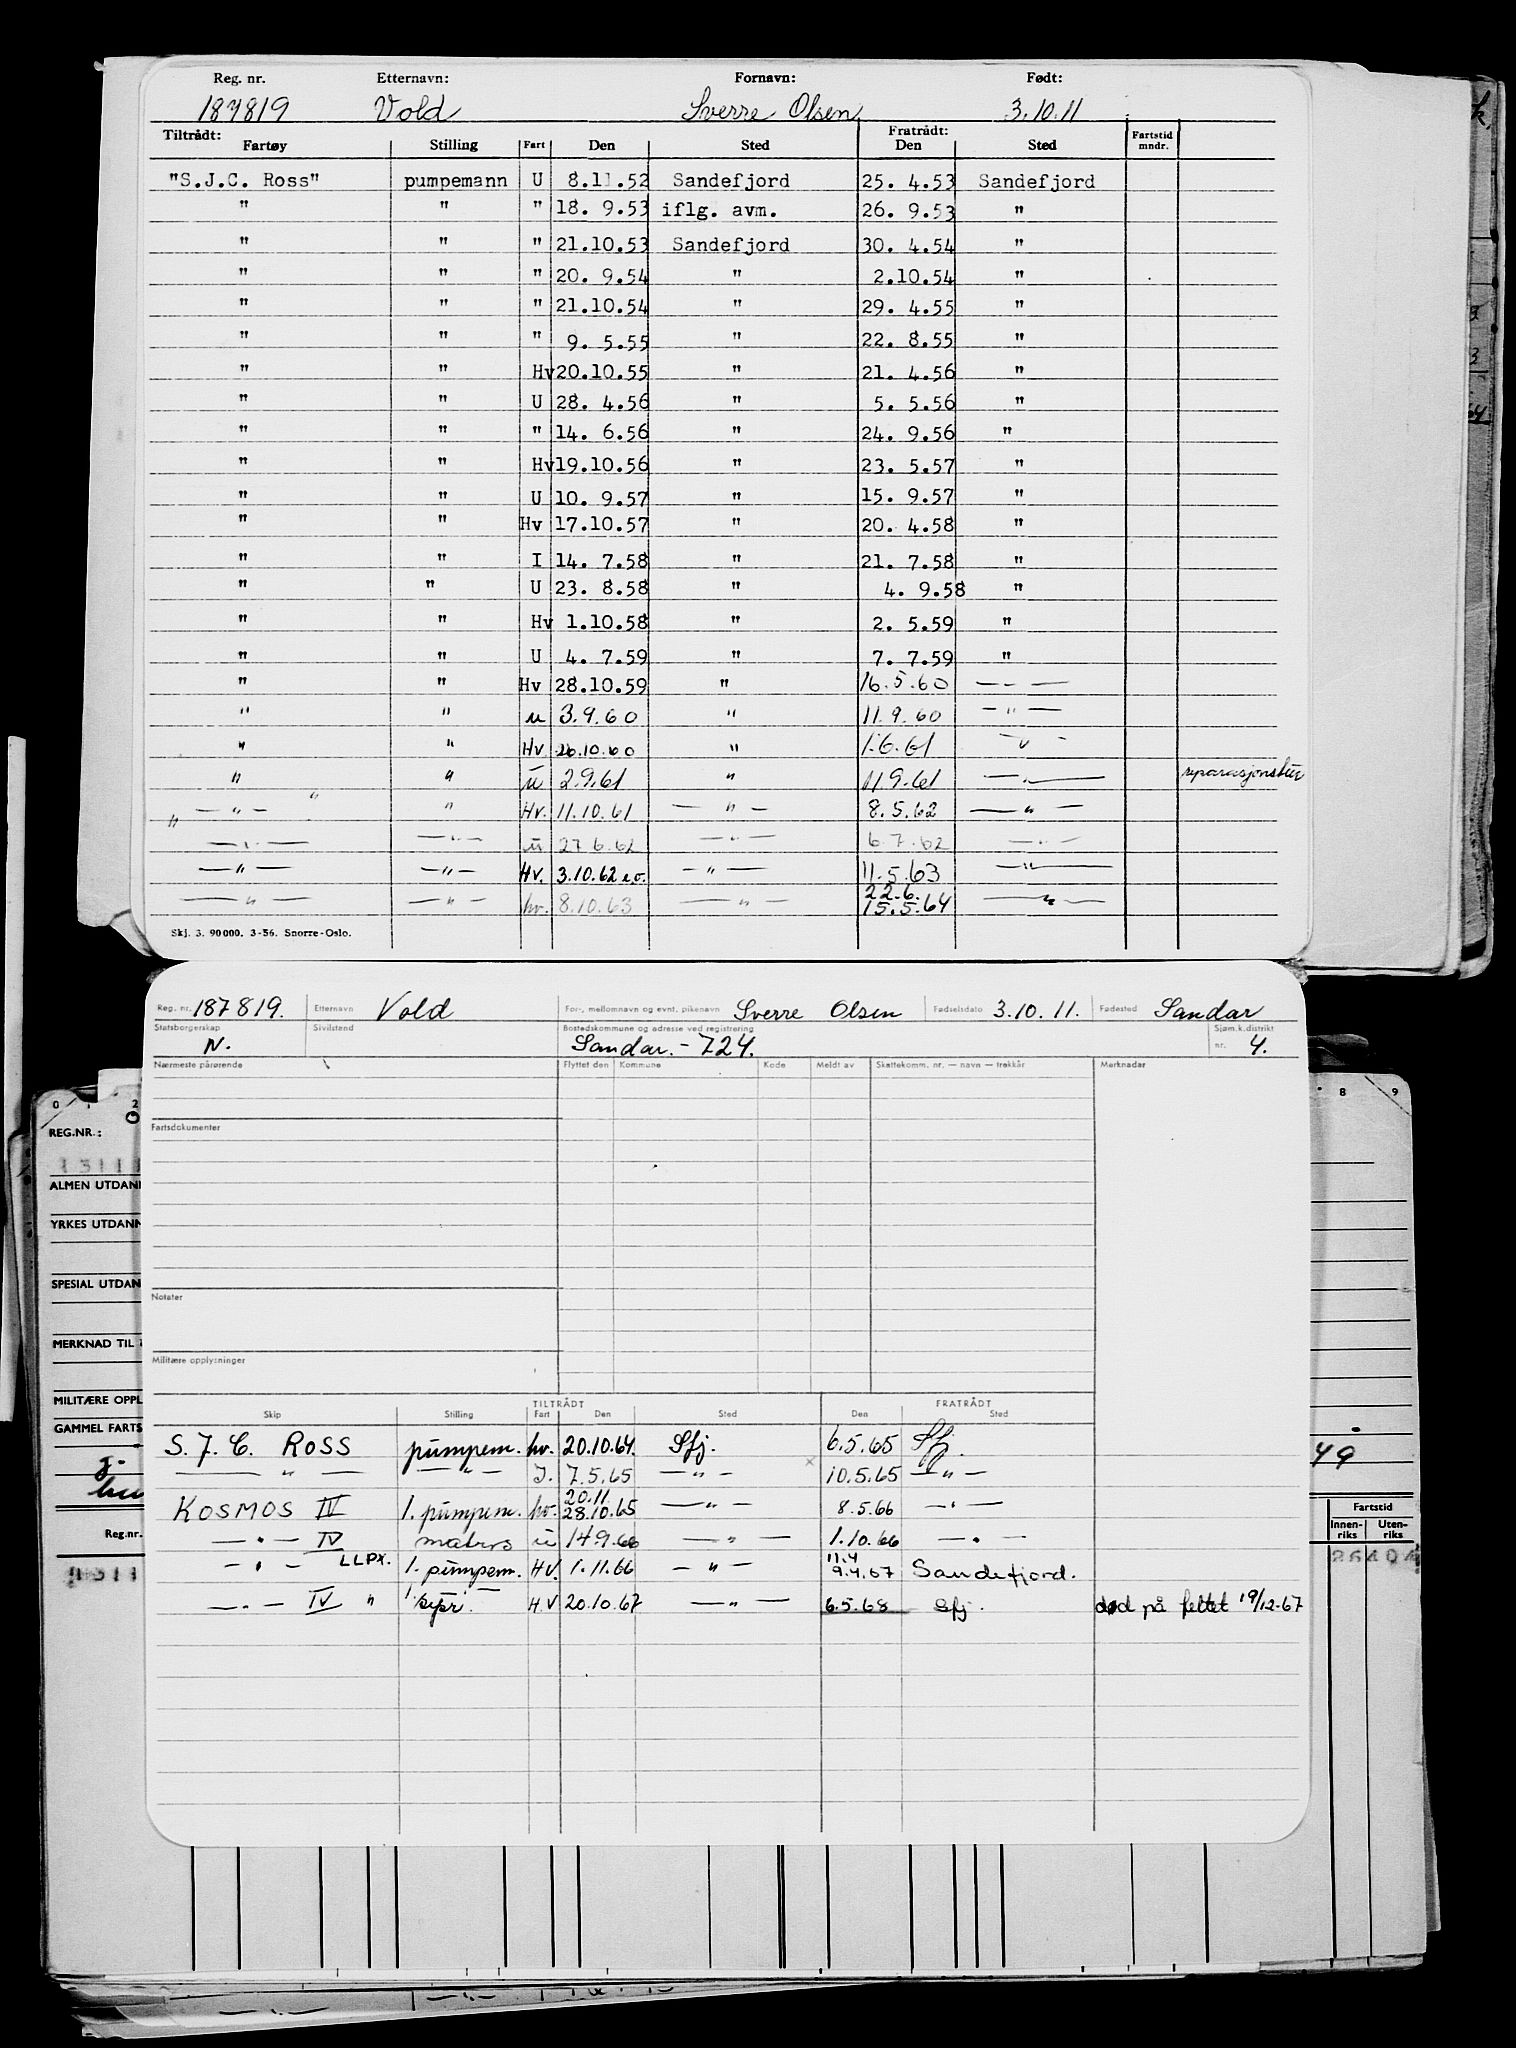 Reg. nr. Etternavn: Fornavn: Født:
187819 Vold Sverre Olsen 3.10.11
Tiltrådt: Fratrådt:
Fartøy Stilling Fart Den Sted Den Sted Fartstid mndr.
"S.J.C. Ross" pumpemann U 8.11.52 Sandefjord 25. 4.53 Sandefjord
" " " 18. 9.53 iflg. avm. 26. 9.53 "
" " " 21.10.53 Sandefjord 30. 4.54 "
" " " 20. 9.54 " 2.10.54 "
" " " 21.10.54 " 29. 4.55 "
" " " 9. 5.55 " 22. 8.55 "
" " Hv 20.10.55 " 21. 4.56 "
" " U 28. 4.56 " 5. 5.56 "
" " " 14. 6.56 " 24. 9.56 "
" " Hv 19.10.56 " 23. 5.57 "
" " U 10. 9.57 " 15. 9.57 "
" " Hv 17.10.57 " 20. 4.58 "
" " I 14. 7.58 " 21. 7.58 "
" " U 23. 8.58 " 4. 9.58 "
" " Hv 1.10.58 " 2. 5.59 "
" " U 4. 7.59 " 7. 7.59 "
" " Hv 28.10.59 " 16.5.60 — - —
" " u 3.9.60 " 11.9.60 — " —
" " Hv 26.10.60 " 1.6.61 — " -
" " u 2.9.61 " 11.9.61 — " —
— " — " Hv. 11.10.61 — " — 8.5.62 — " —
— " — — " — u 27.6.62 — " — 6.7.62 — " —
— " — — " — Hv. 3.10.62 — " — 11.5.63 — " —
22.6.
— " — — " — hv. 8.10.63 — " — 15.5.64 — " —
Skj. 3. 90000. 3-56. Snorre-Oslo.
Reg. nr. 187819. Etternavn Vold For-, mellomnavn og evnt. pikenavn Sverre Olsen Fødselsdato 3.10.11. Fødested Sandar
Statsborgerskap N. Sivilstend Bostedskommune og adresse ved registrering Sandar. - 724. Sjøm.k.distrikt nr. 4.
Nærmeste pårørende Flyttet den Kommune Kode Meldt av Skattekomm. nr. — navn — trekkår Merknader
Fartsdokumenter
Notater
Militære opplysninger
TILTRÅDT FRATRÅDT
Skip Stilling Fart Den Sted Den Sted
S. J. C. ROSS pumpem. hv. 20.10.64. Sfj. 6.5.65 Sfj.
— " — — " — I. 7.5.65 — " — 10.5.65 — " —
20.11
KOSMOS IV 1. pumpem. hv. 28.10.65 — " — 8.5.66 — " —
— " — IV matros u 14.9.66 — " — 1.10.66 — " —
11.4
— " — LLPX. 1. pumpem. HV. 1.11.66 — " — 9.4.67 Sandefjord.
— " — IV " HV 20.10.67 — " — 6.5.68 Sfj. død på feltet 19/12-67
0 1 2 8 9
REG.NR.:
ALMEN UTDAN
YRKES UTDANN
SPESIAL UTDAN
MERKNAD TIL
MILITÆRE OPPL
GAMMEL FARTS
49
Reg.nr.
Fartstid
Innen-riks Uten-riks